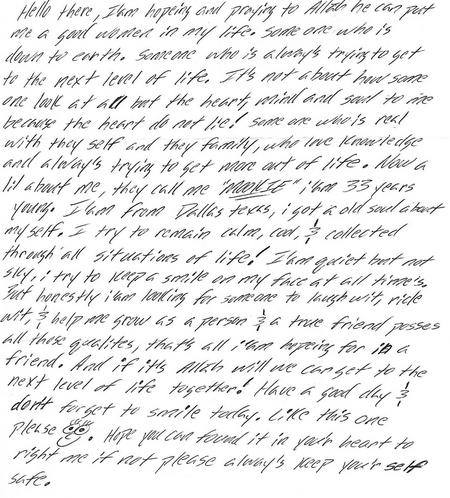 Hello there, I am hopeing and praying to Allah he can put
me a good women in my life. some one who is
down to earth. someone who is always trying to get
to the next level of life. It's not about how some
one look at all but the heart, mind and soul to me
because the heart do not lie! some one who is real
with they self and they family, who love knowledge
and alway's trying to get more out of life. Now a
lil about me, they call me "MOOKIE" i'am 33 years
young. I am from Dallas texas, i got a old soul about
myself. I try to remain calm, cool, & collected
through all situations of life! I am quiet but not
shy, i try to keep a smile on my face at all time's.
But honestly i'am looking for someone to laugh wit, ride
wit, & help me grow as a person & a true friend posses
all those qualites, that's all i'am hopeing for in a
friend. And if it's Allah will we can get to the
next level of life together! Have a good day &
don't forget to smile today. Like this one
please. Hope you can found it in your heart to
right me if not please alway's keep your self
safe.